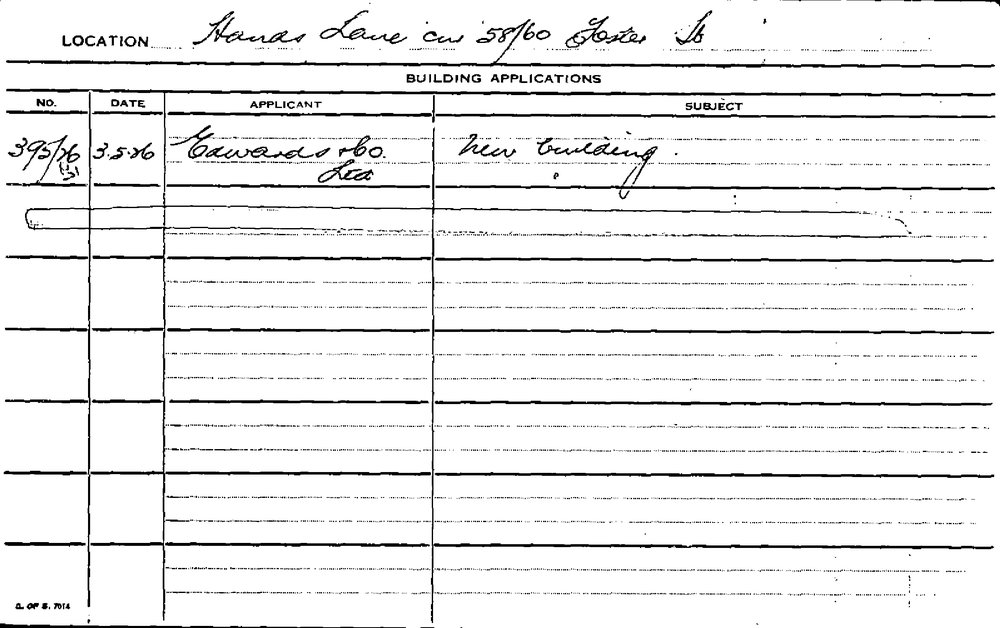 LOCATION Hands Lane cnr 58/60 Foster St
BUILDING APPLICATIONS
NO. DATE APPLICANT SUBJECT
395/26 3.5.26 Edwards & Co. New building.
Ltd
C. OF S. 7014